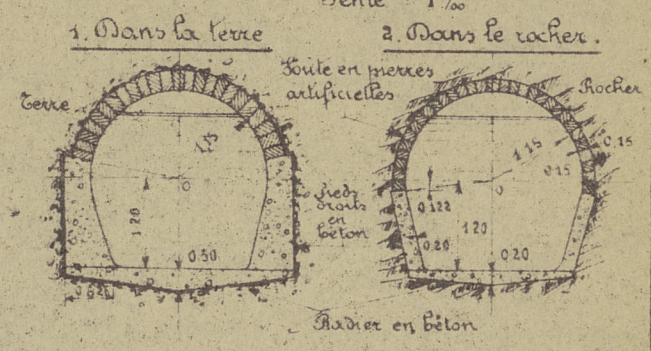 Pente 1 ‰
1. Dans la terre
2. Dans le rocher.
Voûte en pierres
artificielles
Terre
Rocher
1,15
0
1.20
0.30
Pieds
droits
en
béton
1.15
0.15
0.15
0
0.122
1.20
0.20
0.20
Radier en béton